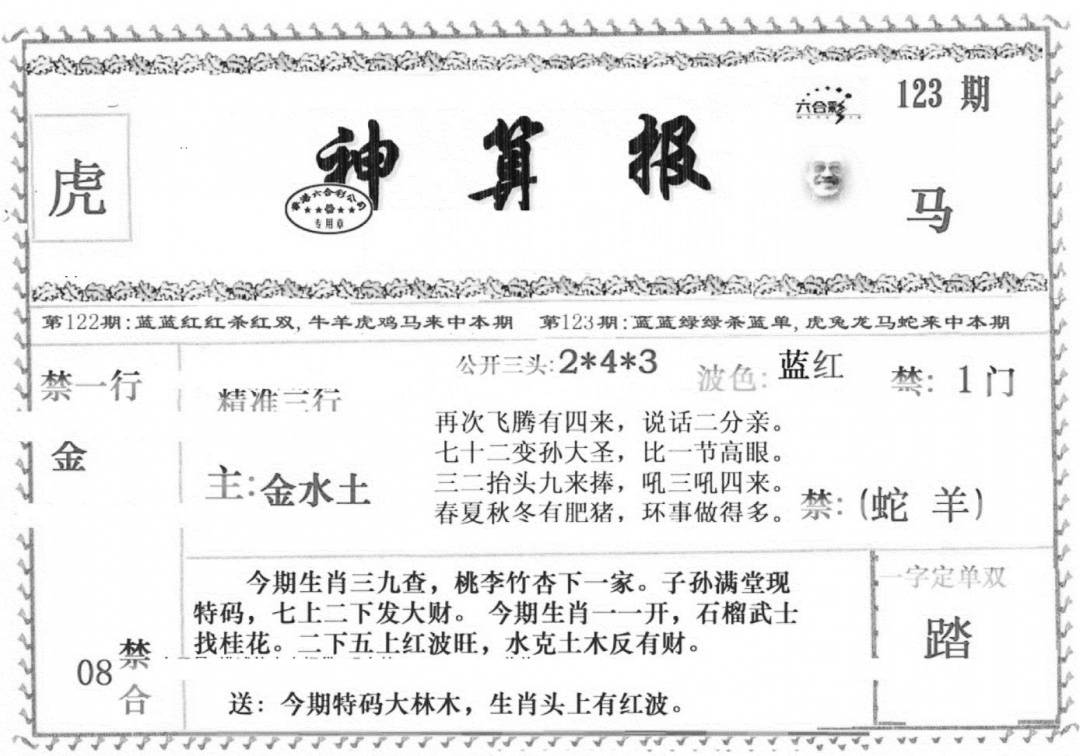 六合彩
123 期
虎
神算报
香港六合彩公司
专用章
马
第122期:蓝蓝红红杀红双,牛羊虎鸡马来中本期 第123期:蓝蓝绿绿杀蓝单,虎兔龙马蛇来中本期
禁一行
金
精准三行
主:金水土
公开三头:2*4*3
波色:蓝红
禁: 1门
再次飞腾有四来，说话二分亲。
七十二变孙大圣，比一节高眼。
三二抬头九来捧，吼三吼四来。
春夏秋冬有肥猪，环事做得多。
禁:(蛇 羊)
今期生肖三九查，桃李竹杏下一家。子孙满堂现
特码，七上二下发大财。 今期生肖一一开，石榴武士
找桂花。二下五上红波旺，水克土木反有财。
送：今期特码大林木，生肖头上有红波。
08
禁
合
一字定单双
踏